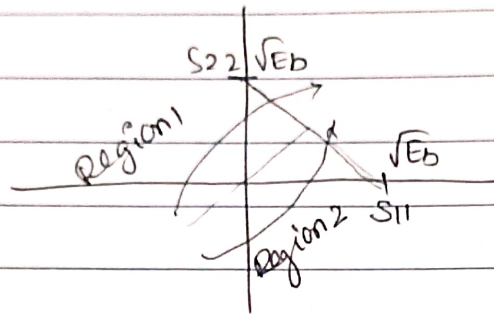 S22 √Eb
Region1
√Eb
S11
Region2